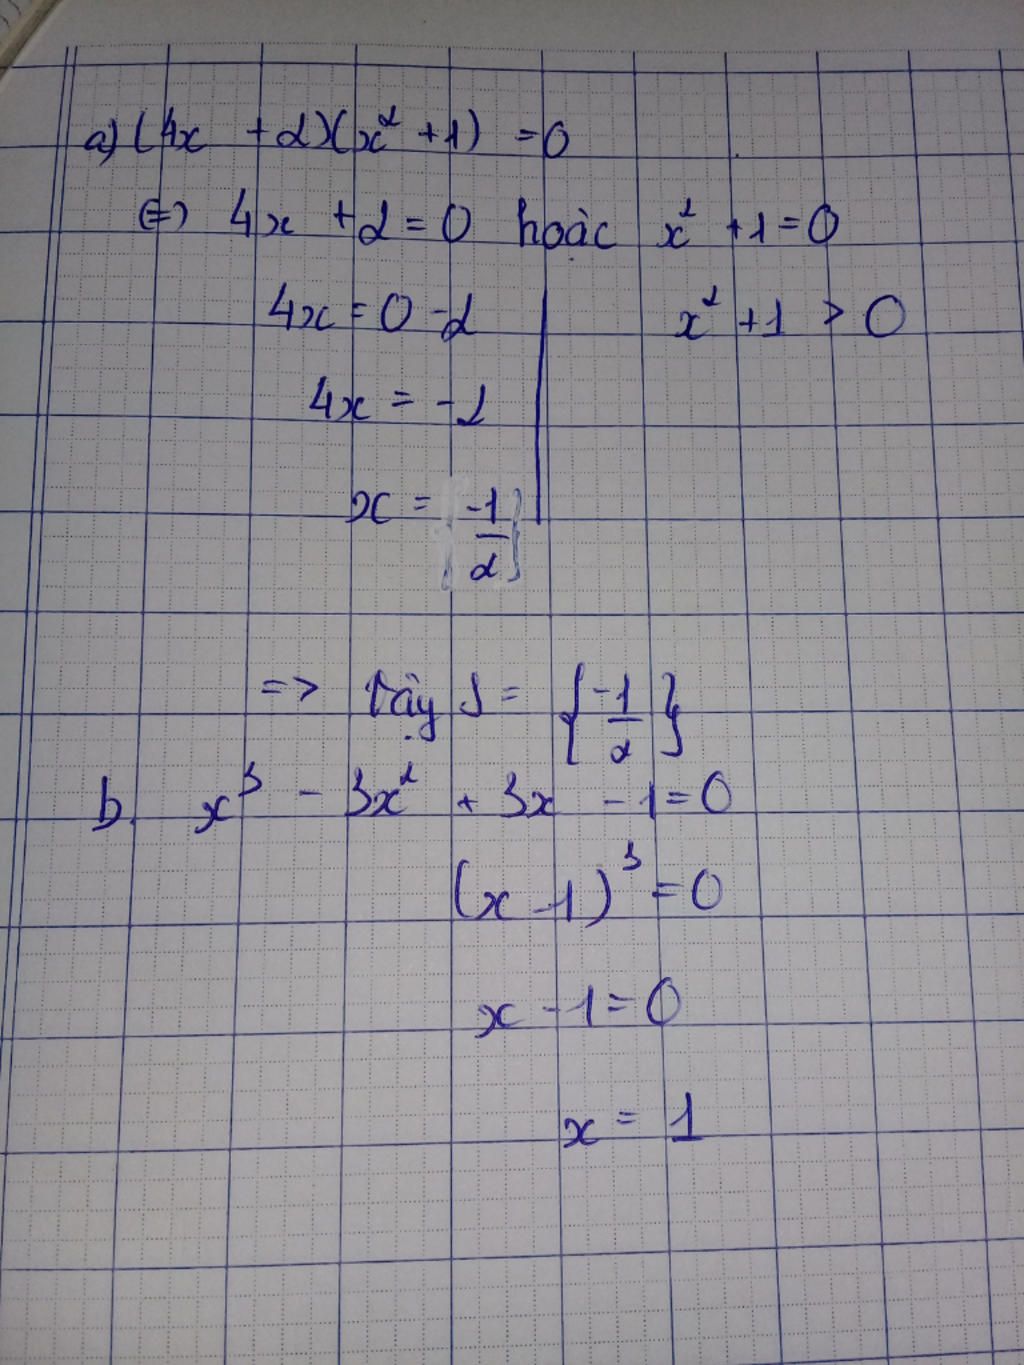 a) (4x + 2)(x² + 1) = 0
⇔ 4x + 2 = 0 hoặc x² + 1 = 0
4x = 0 - 2 | x² + 1 > 0
4x = -2
x = {-1/2}
=> Vậy S = {-1/2}
b. x³ - 3x² + 3x - 1 = 0
(x - 1)³ = 0
x - 1 = 0
x = 1